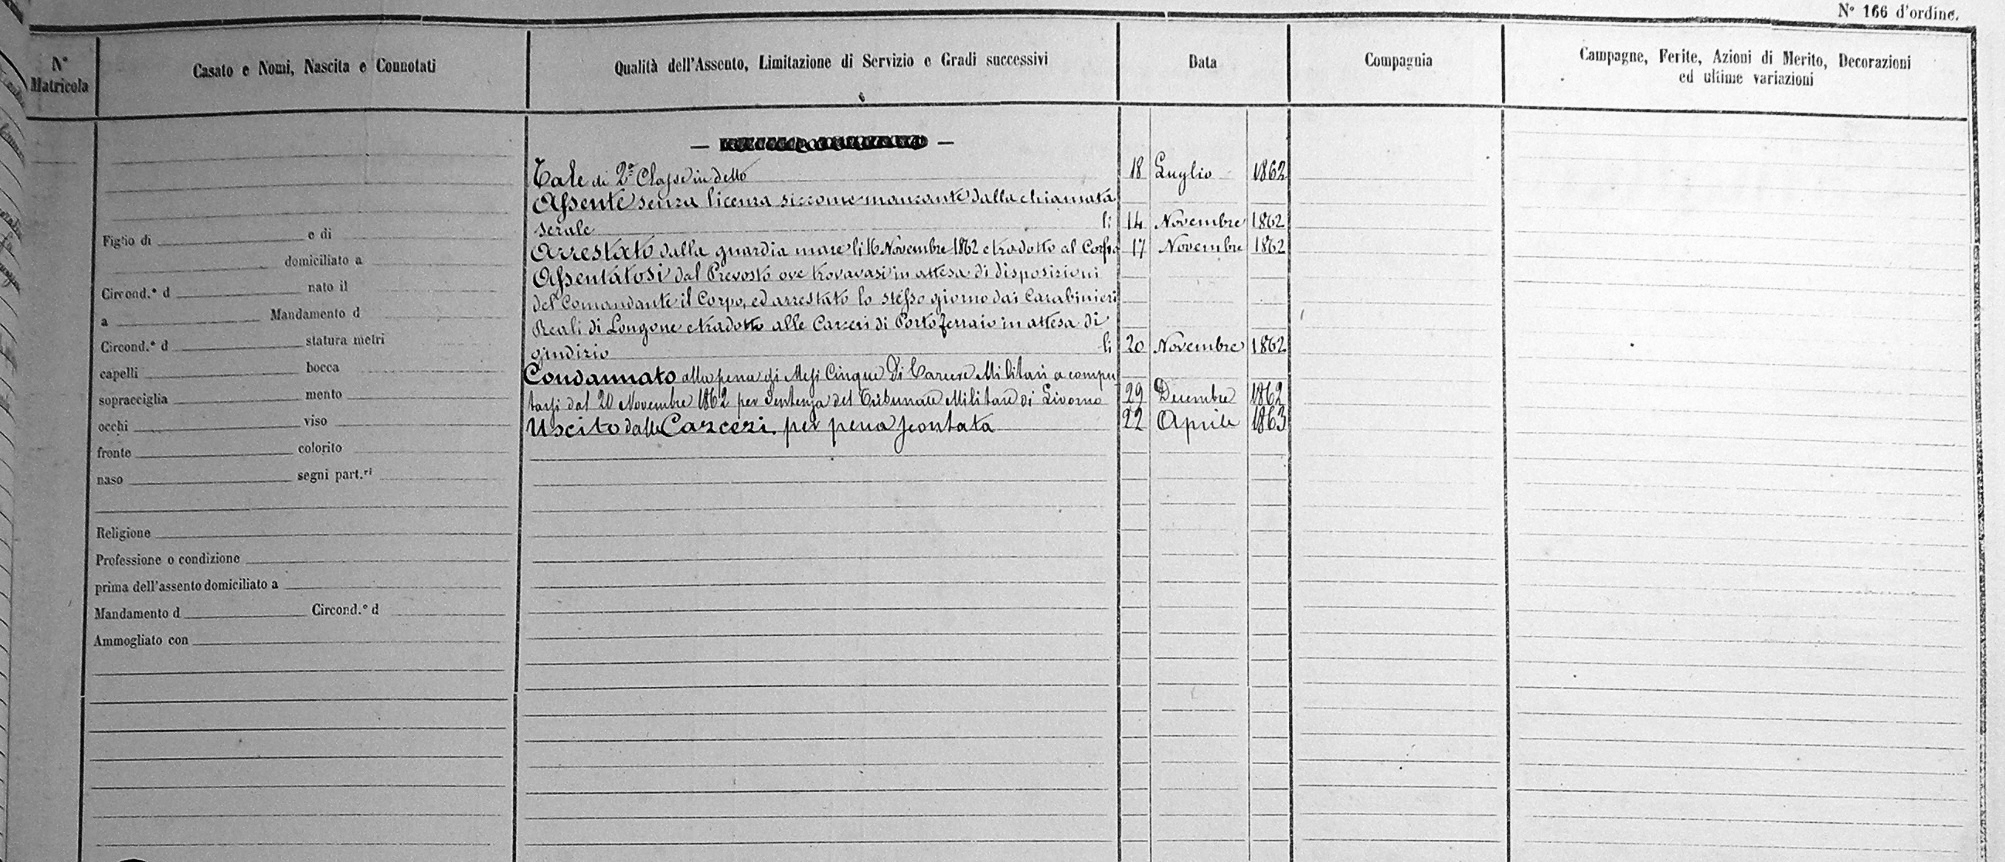 N° 166 d'ordine.
N° Matricola
Casato e Nomi, Nascita e Connotati
Qualità dell'Assento, Limitazione di Servizio e Gradi successivi
Data
Compagnia
Campagne, Ferite, Azioni di Merito, Decorazioni
ed ultime variazioni
Tale di 2ª Classe in detto 18 Luglio 1862
Assente senza licenza siccome mancante dalla chiamata
serale li 14 Novembre 1862
Arrestato dalla guardia mare li 16 Novembre 1862 e tradotto al Corpo 17 Novembre 1862
Assentatosi dal Prevosto ove trovavasi in attesa di disposizioni
del Comandante il Corpo, ed arrestato lo stesso giorno dai Carabinieri
Reali di Longone e tradotto alle Carceri di Portoferraio in attesa di
giudizio li 20 Novembre 1862
Condannato alla pena di Mesi Cinque di Carcere Militare a compu
tarsi dal 20 Novembre 1862 per sentenza del Tribunale Militare di Livorno 29 Dicembre 1862
Uscito dalle Carceri per pena scontata 22 Aprile 1863
Figlio di e di
domiciliato a
Circond.° d nato il
a Mandamento d
Circond.° d statura metri
capelli bocca
sopracciglia mento
occhi viso
fronte colorito
naso segni part.ri
Religione
Professione o condizione
prima dell'assento domiciliato a
Mandamento d Circond.° d
Ammogliato con